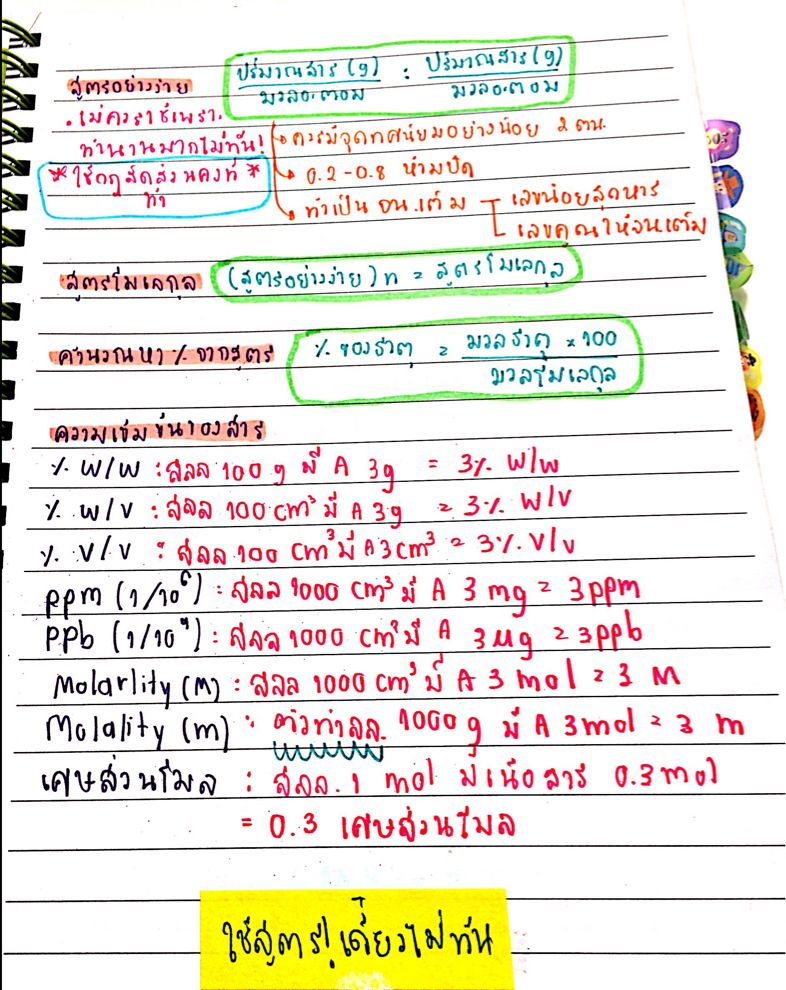 ปริมาณสาร (g) : ปริมาณสาร (g)
มวลอะตอม มวลอะตอม
สูตรอย่างง่าย
ทำนานมากไม่ทัน!
ควรมีจุดทศนิยมอย่างน้อย 2 ตน.
* ใช้กฎสัดส่วนคงที่ *
ทำ
0.2-0.8 ห้ามปัด
ทำเป็น จน.เต็ม
เลขน้อยสุดหาร
เลขคูณให้จนเต็ม
สูตรโมเลกุล (สูตรอย่างง่าย) n = สูตรโมเลกุล
คำนวณหา % จากสูตร % ของธาตุ = มวลธาตุ × 100
มวลโมเลกุล
ความเข้มข้นของสาร
% W/W : สลล 100 g มี A 3g = 3% W/W
% W/V : สลล 100 cm³ มี A 3g = 3% W/V
% V/V : สลล 100 cm³ มี A 3 cm³ = 3% V/V
ppm (1/10⁶) : สลล 1000 cm³ มี A 3 mg = 3ppm
PPb (1/10⁹) : สลล 1000 cm³ มี A 3 µg = 3ppb
Molarlity (M) : สลล 1000 cm³ มี A 3 mol = 3 M
Molality (m) : ตัวทำลล. 1000 g มี A 3 mol = 3 m
เศษส่วนโมล : สลล. 1 mol มีเนื้อสาร 0.3 mol
= 0.3 เศษส่วนโมล
ใช้สูตร! เดี๋ยวไม่ทัน